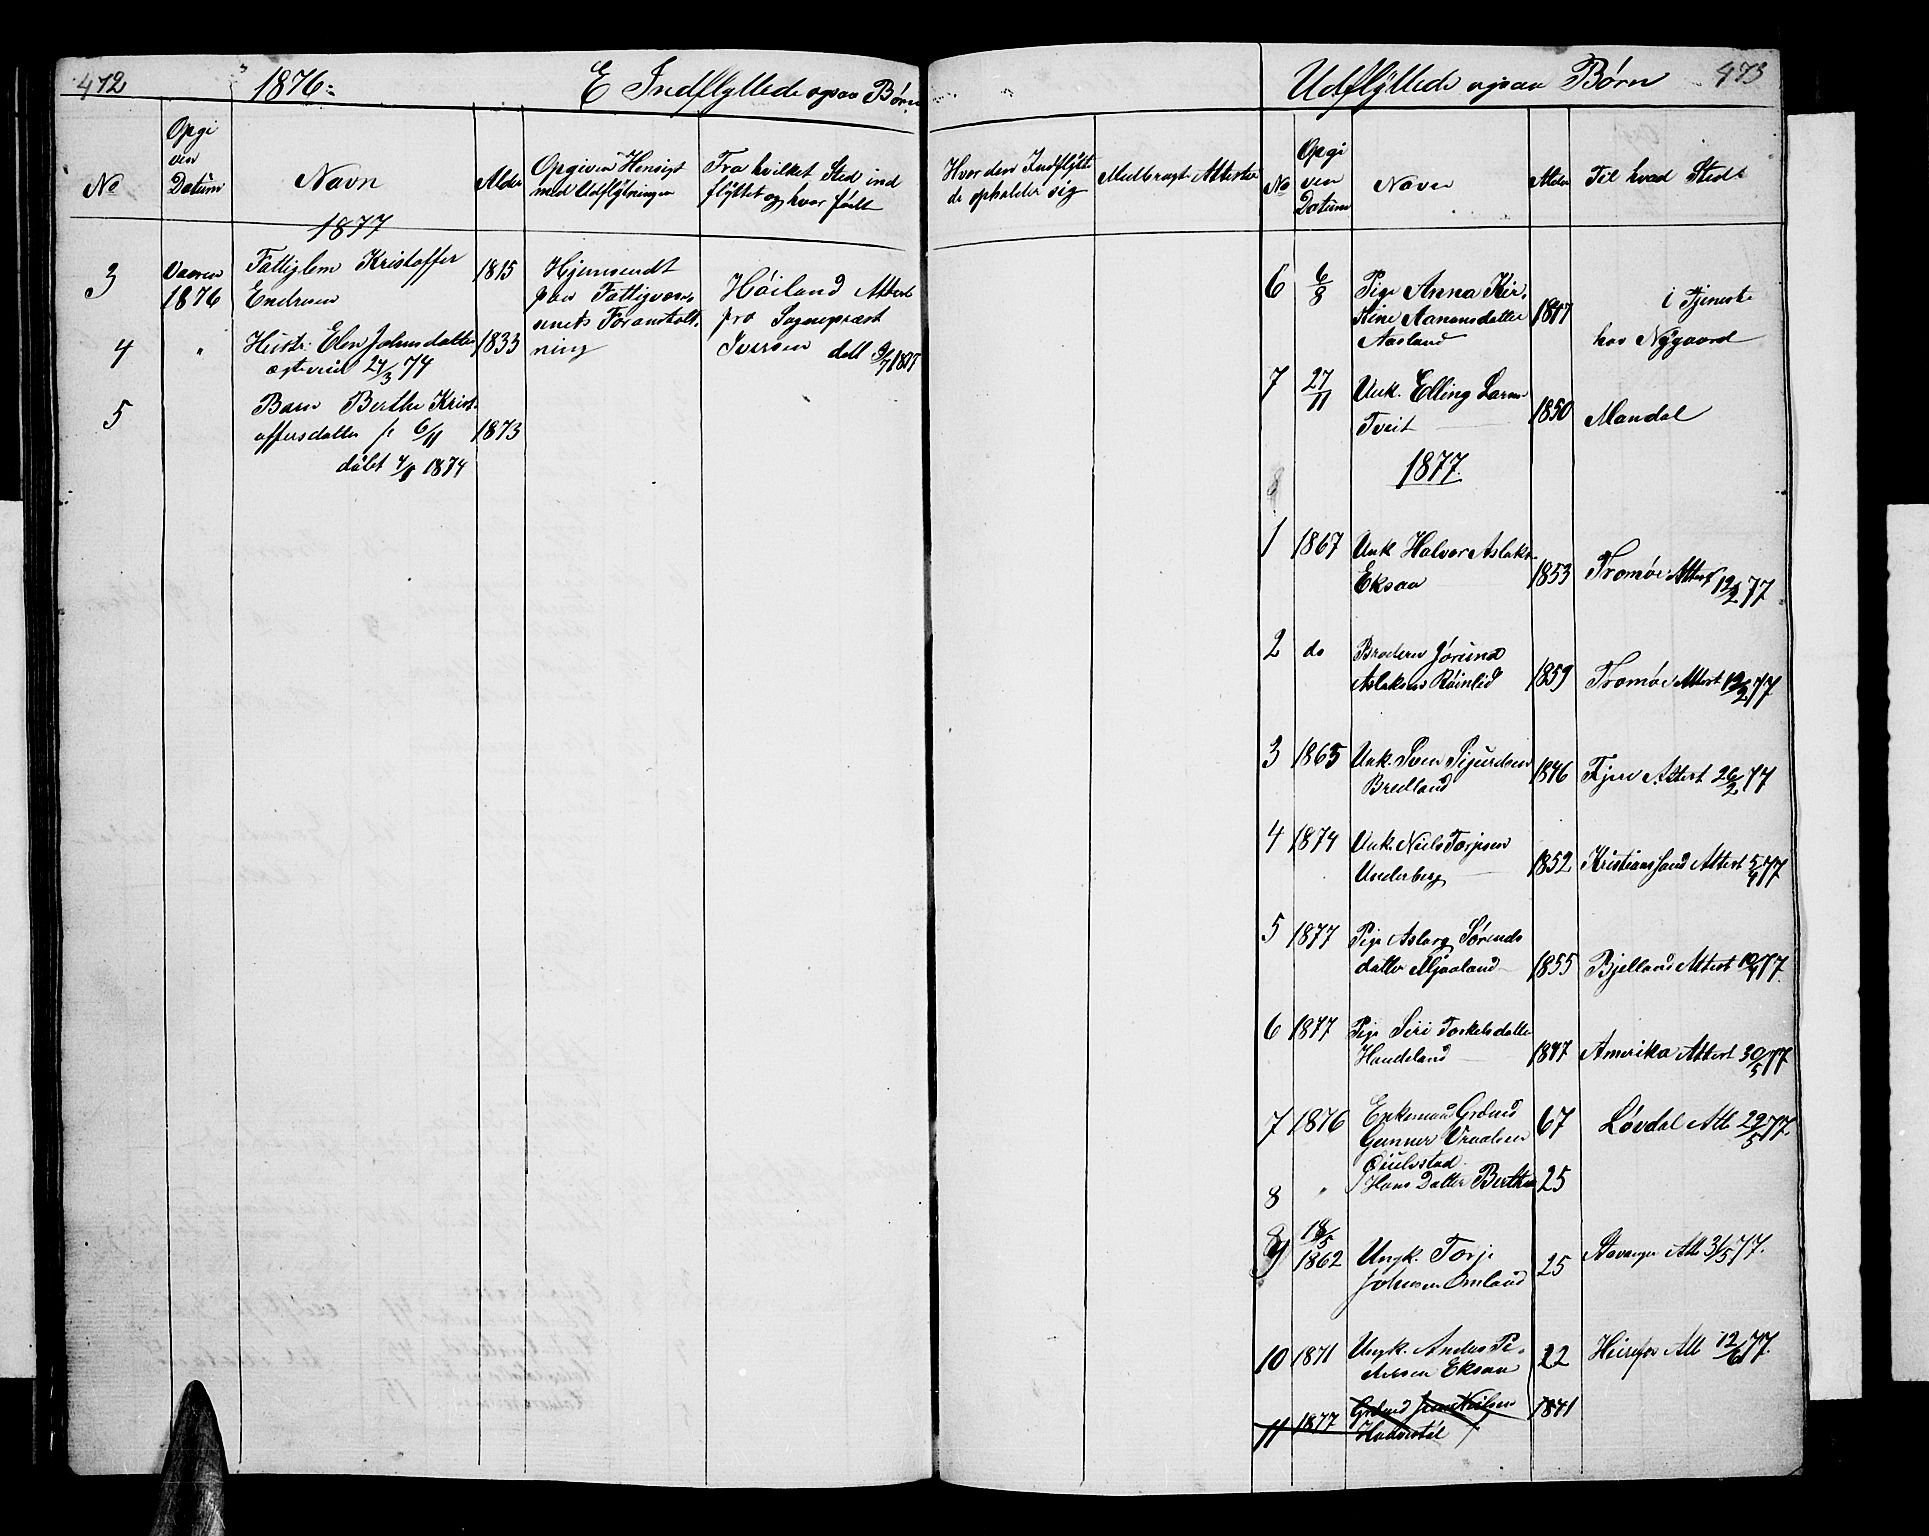 472
1876:
E Indflyttede ogsaa Børn
No
Opgi
ven
Datum
Navn
Alder
Opgiven Hensigt
med Udflytningen
Fra hvilket Sted ind
flyttet og hvor født
1877
3
Vaaren
1876
Fattiglem Kristoffer
Endresen
1815
Hjemsendt
paa Fattigvæs
enets Foranstalt
ning
Høiland Attest
fra Sognepræst
Iversen dat 9/7 1877
4
"
Hustr. Elen Johnsdatter
ægteviet 24/3 74
1833
5
Barn Berthe Krist
offersdatter f. 6/11
1873
døbt 4/1 1874
Udflyttede ogsaa Børn
473
Hvor den Indflytte
de opholder sig
Medbragt Attester
No
Opgi
ven
Datum
Navn
Alder
Til hvad Sted
6
6/8
Pige Anna Kir
stine Aanensdatter
Aasland
1847
i Tjeneste
hos Nygaard
7
27/11
Unk. Elling Larsen
Tveit
1850
Mandal
1877.
1
1867
Unk Halvor Aslaks
Eksaa
1853
Tromøe Attest 12/2 77
2
do
Broderen Jørund
Aslaksen Røinlid
1859
Tromøe Attest 12/2 77
3
1865
Unk. Sven Sigurdsen
Bredland
1846
Fjære Attest 26/2 77
4
1874
Unk. Niels Torjesen
Underberg
1852
Kristianssand Attest 5/4 77
5
1877
Pige Aslaug Sørens
datter Mjaaland
1855
Bjelland Attest 10/4 77.
6
1877
Pige Siri Torkelsdatter
Haudeland
1847
Amerika Attest 30/5 77
7
1876
Enkemand Grdmd
Gunner Vraalsen
Øiulvstad
67
Løvdal Att 29/5 77
8
"
Hans Datter Berthe
25
9
18/5
1862
Ungk. Torje
Johnsen Omland
25
Stavanger Att 31/5 77.
10
1871
Ungk. Anders Pe
dersen Eksaa
22
Heirefos Att 12/6 77.
11
1877
Grdmd Jens Nielsen
Hodnestøl
1841